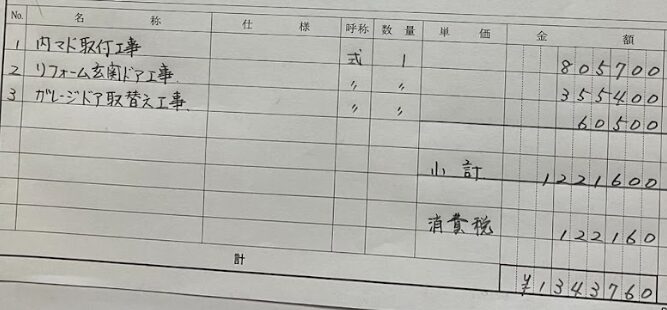 No. 名称 仕様 呼称 数量 単価 金額
1 内マド取付工事 式 1 805700
2 リフォーム玄関ドア工事 〃 〃 355400
3 ガレージドア取替え工事 〃 〃 60500
小計 1221600
消費税 122160
計 ¥1343760